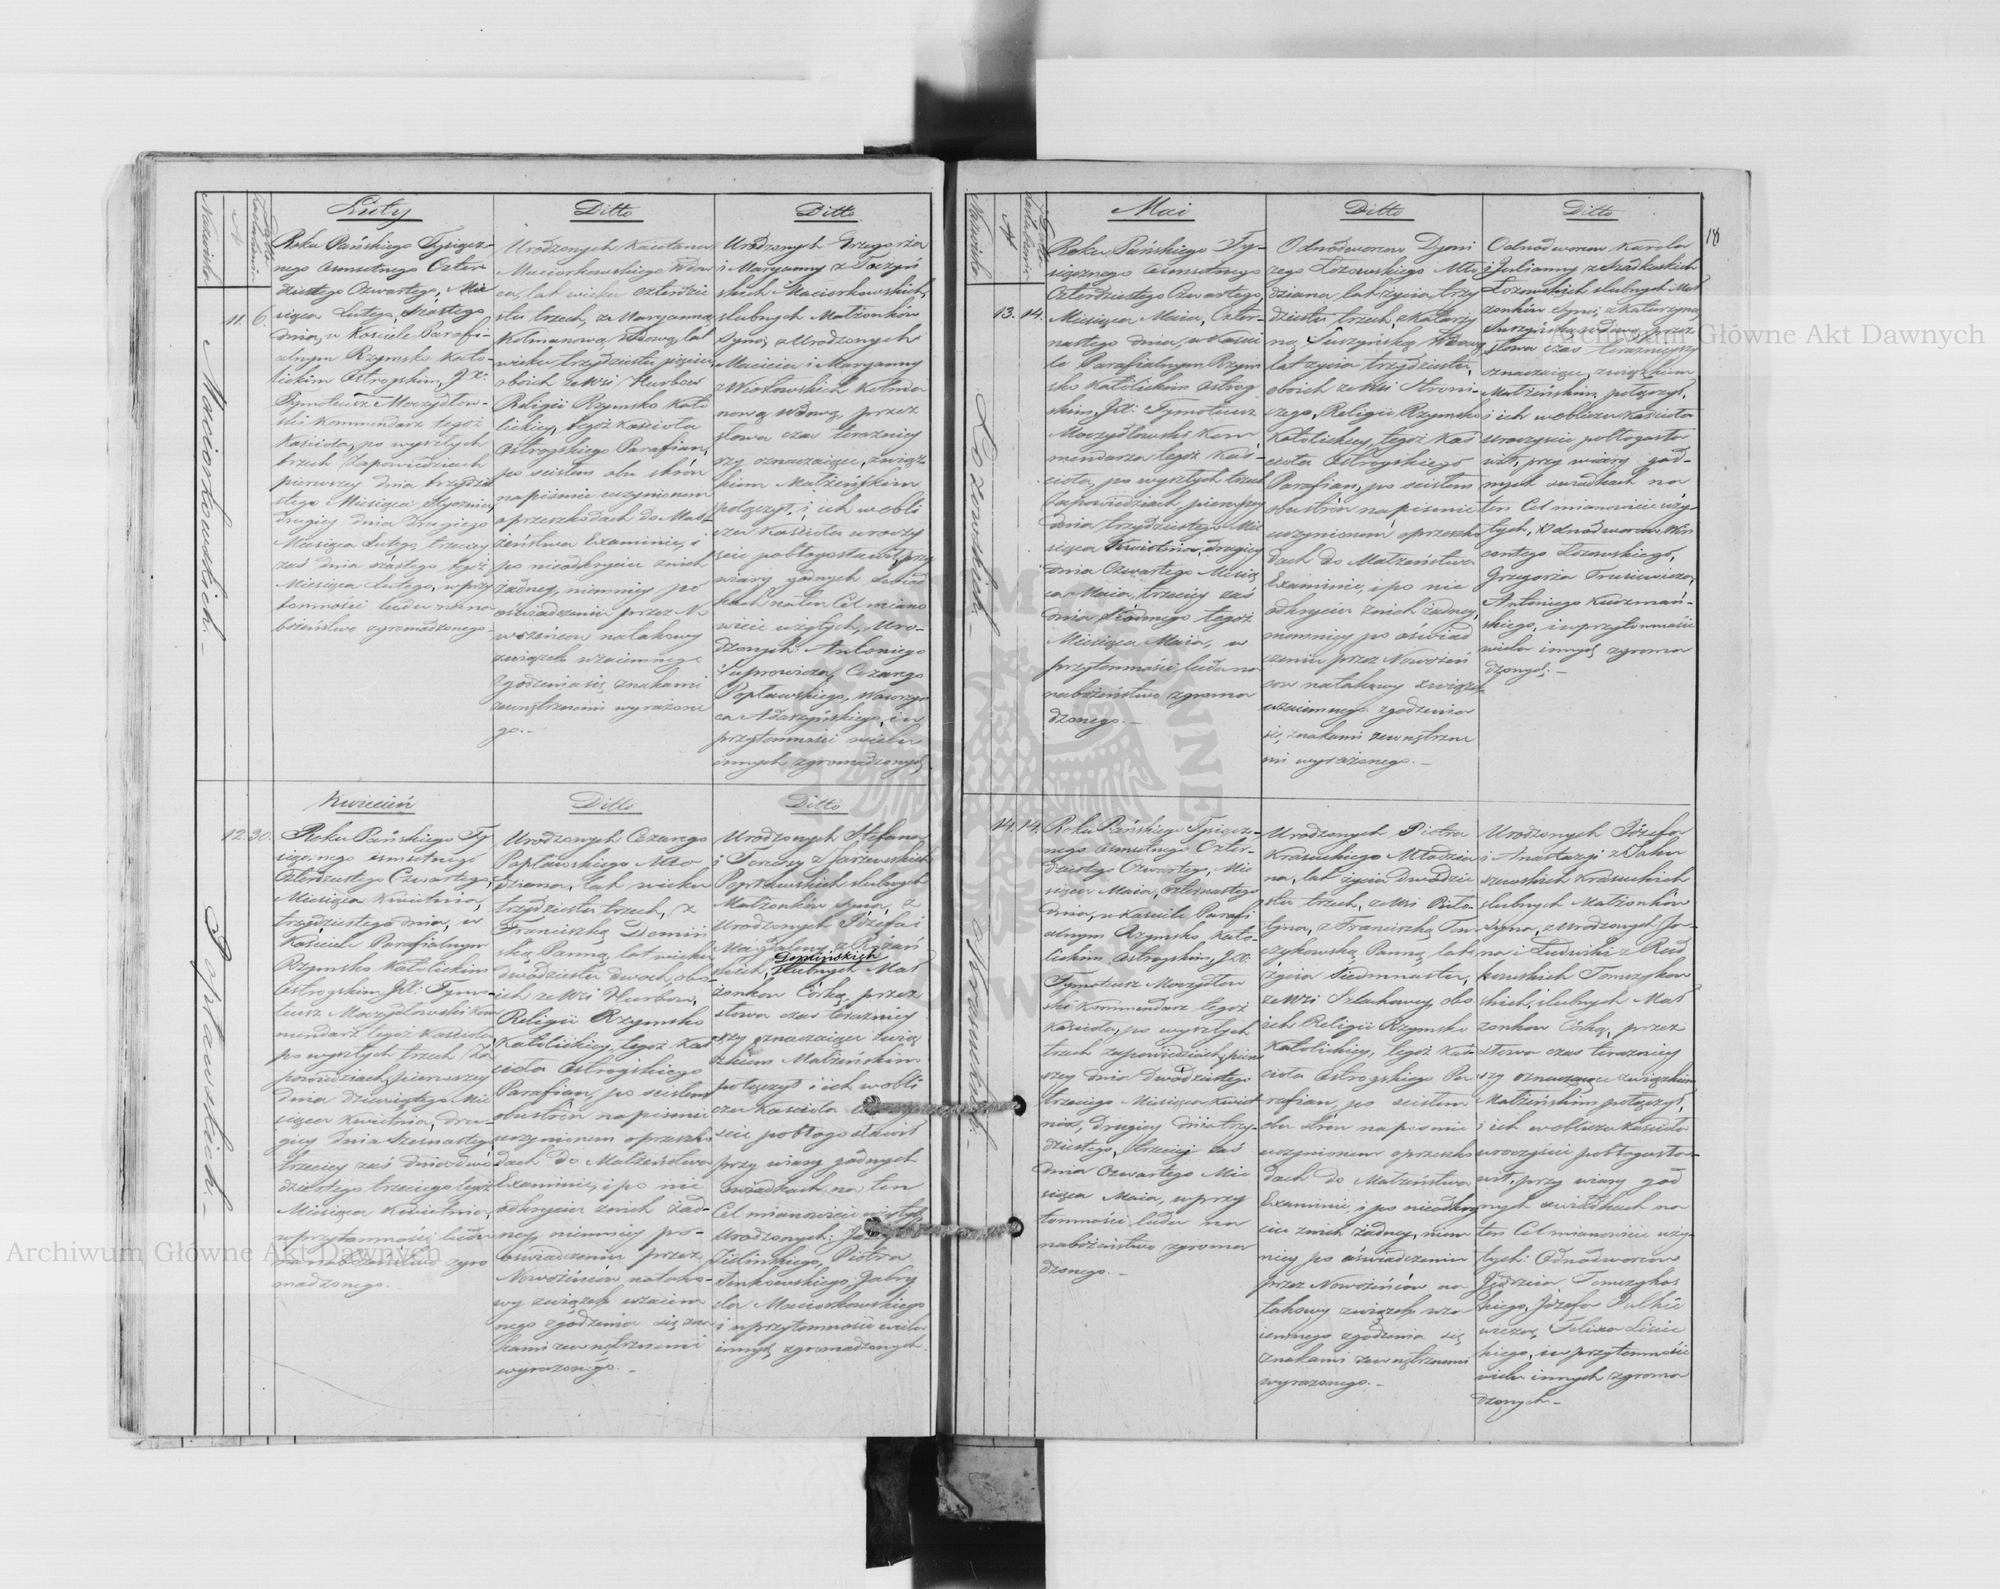 Nazwisko
N
Luty
Roku Pańskiego Tysiącz-
nego Osmsetnego Czter
dziestego Czwartego, Mie
siąca Lutego, szóstego
dnia, w Kościele Parafi-
alnym Rzymsko Kato-
lickim Ostrogskim, JX:
Tymoteusz Moczydłow-
ski Kommendarz tegoż
Kościoła, po wyszłych
trzech Zapowiedziach
pierwszey dnia trzydzie
stego Miesiąca Stycznia,
drugiey dnia Drugiego
Miesiąca Lutego, trzeciey
zaś dnia szóstego tegoż
Miesiąca Lutego, w przy
tomności ludu na na
bożeństwo zgromadzonego.
11.
6.
Maciorkowskich. –
Ditto
Urodzonych Kaietana
Maciorkowskiego Wdow
ca, lat wieku czterdzie
stu trzech, z Maryanną
Kolmanową, Wdową, lat
wieku trzydziestu pięciu,
oboich ze Wsi Hurbow
Religii Rzymsko Kato
lickiey, tegoż Kościoła
Ostrogskiego Parafian,
po scisłem obu stron
napismie uczynionem
o przeszkodach do Mał-
żeństwa Examinie, i
po nieodkryciu znich
żadney, niemniey po
oświadczeniu przez No
wożeńcow na takowy
związek wzaiemnego
zgodzenia się znakami
zewnętrznemi wyrażone
go. –
Ditto
Urodzonych Grzegorza
i Maryanny z Toczyń
skich Maciorkowskich,
slubnych Małżonków
Syna, z Urodzonych
Macieia i Maryanny
z Wiszłowskich Kolma
nową Wdową, przez
słowa czas teraźniey
szy oznaczaiące, związ-
kiem Małżeńskim
połączył, i ich w obli
czu Kościoła uroczy
scie pobłogosławił, przy
wiary godnych swiad
kach na ten Cel miano
wicie użytych, Uro-
dzonych: Antoniego
Suprowicza, Cezarego
Popławskiego, Wawrzyń
ca Adarzyńskiego, i w
przytomności wielu
innych zgromadzonych.
Kwiecień
12.
30.
Popławskich. –
Roku Pańskiego Ty
siącznego osmsetnego
Czterdziestego Czwartego,
Miesiąca Kwietnia,
trzydziestego dnia, w
Kościele Parafialnym
Rzymsko Katolickim
Ostrogskim, JX: Tymo-
teusz Moczydłowski Kom
mendarz tegoż Kościoła
po wyszłych trzech Za
powiedziach, pierwszey
dnia dziewiątego Mie
siąca Kwietnia, dru-
giey dnia Szesnastego
trzeciey zaś dnia dwu
dziestego trzeciego tegoż
Miesiąca Kwietnia,
w przytomności ludu
na nabożeństwo zgro
madzonego.
Ditto
Urodzonych Cezarego
Popławskiego Mło
dziana, lat wieku
trzydziestu trzech, z
Franciszką Domiń
ską Panną, lat wieku
dwudziestu dwoch, obo-
ich ze Wsi Hurbow,
Religii Rzymsko
Katolickiey, tegoż Koś
cioła Ostrogskiego
Parafian, po scisłem
obustron napismie
uczynionem o przeszko
dach do Małżeństwa
Examinie, i po nie
odkryciu znich żad-
ney, niemniey po-
oświadczeniu przez
Nowożeńcow natako-
wy związek wzaiem
nego zgodzenia się zna
kami zewnętrznemi
wyrażonego. –
Ditto
Urodzonych Stefana
i Teresy z Jarzewskich
Popławskich slubnych
Małżonków Syna, z
Urodzonych Józefa i
Magdaleny z Rożań
skich, Domińskich slubnych Mał
żonkow Córką, przez
słowa czas teraźniey
szy oznaczaiące związ
kiem Małżeńskim
połączył i ich w obli
czu Kościoła uroczy
scie pobłogosławił
przy wiary godnych
swiadkach na ten
Cel mianowicie użytych
Urodzonych:
Zielinskiego, Piotra
Gabry
ela Maciorkowskiego
i w przytomności wielu
innych zgromadzonych.
18
Nazwisko
N
Mai
13.
14.
Łozowskich. –
Roku Pańskiego Ty-
siącznego Osmsetnego
Czterdziestego Czwartego,
Miesiąca Maia, Czter-
nastego dnia, w Koście
le Parafialnym Rzym
sko Katolickim Ostrog
skim, JX: Tymoteusz
Moczydłowski Kom
mendarz tegoż Koś-
cioła, po wyszłych trzech
Zapowiedziach pierwszey
dnia trzydziestego Mie
siąca Kwietnia, drugiey
dnia Czwartego Miesią
ca Maia, trzeciey zaś
dnia siódmego tegoż
Miesiąca Maia, w
przytomności ludu na
nabożeństwo zgroma
dzonego. –
Ditto
Odnodworcow Dyoni
zego Łozowskiego Mło
dziana, lat życia trzy
dziestu trzech, z Katarzy
ną Wdową
lat życia trzydziestu,
oboich ze Wsi
Religii Rzymsko
Katolickiey, tegoż Koś
cioła Ostrogskiego
Parafian, po scisłem
obustron napismie
uczynionem o przeszko
dach do Małżeństwa
Examinie, i po nie
odkryciu znich żadney,
niemniey po oświad
czeniu przez Nowożeń
cow natakowy związek
wzaiemnego zgodzenia
się, znakami zewnętrzne
mi wyrażonego. –
Ditto
Odnodworcow Karola
i Julianny z
Łozowskich slubnych Mał
żonkow Syna, z Katarzyną
Wdową, przez
słowa czas teraźnieyszy
oznaczaiące, związkiem
Małżeńskim połączył,
i ich w obliczu Kościoła
uroczyscie pobłogosła
wił, przy wiary god-
nych swiadkach na
ten Cel mianowicie uży-
tych, Odnodworcow Win
centego Łozowskiego,
Grzegorza Trusiewicza,
Antoniego Kuczmań-
skiego, i w przytomności
wielu innych zgroma
dzonych. –
14.
14.
Krasuckich. –
Roku Pańskiego Tysiącz-
nego Osmsetnego Czter-
dziestego Czwartego, Mie
siąca Maia, Czternastego
dnia, w Kościele Parafi
alnym Rzymsko Kato-
lickim Ostrogskim, JX:
Tymoteusz Moczydłow
ski Kommendarz tegoż
Kościoła, po wyszłych
trzech zapowiedziach, pierw
szey dnia Dwudziestego
trzeciego Miesiąca Kwiet
nia, drugiey dnia trzy-
dziestego, trzeciey zaś
dnia Czwartego Mie
siąca Maia, w przy
tomności ludu na
nabożeństwo zgroma
dzonego. –
Urodzonych Piotra
Krasuckiego Młodzia
na, lat życia dwudzie
stu trzech, ze Wsi
z Franciszką Tom
czykowską Panną, lat
życia siedmnastu,
ze Wsi Szlachowey, obo
ich Religii Rzymsko
Katolickiey, tegoż Koś
cioła Ostrogskiego Pa
rafian, po scisłem
obu stron napismie
uczynionem o przeszko
dach do Małżeństwa
Examinie, i po nieodkry
ciu znich żadney, niem
niey po oświadczeniu
przez Nowożeńcow na
takowy związek wza
iemnego zgodzenia się
znakami zewnętrznemi
wyrażonego. –
Urodzonych Józefa
i Anastazyi z
Krasuckich
slubnych Małżonkow
Syna, z Urodzonych Ja-
na i Ludwiki z Rud
kowskich Tomczykow
skich, slubnych Mał
żonkow Córką, przez
słowa czas teraźniey
szy oznaczaiące związkiem
Małżeńskim połączył,
i ich w obliczu Kościoła
uroczyscie pobłogosła-
wił, przy wiary god
nych swiadkach na
ten Cel mianowicie uży-
tych: Odnodworcow
Jędrzeia Tomczykow
skiego, Józefa
Felixa
kiego, i w przytomności
wielu innych zgroma
dzonych. –
Archiwum Główne Akt Dawnych
Archiwum Główne Akt Dawnych